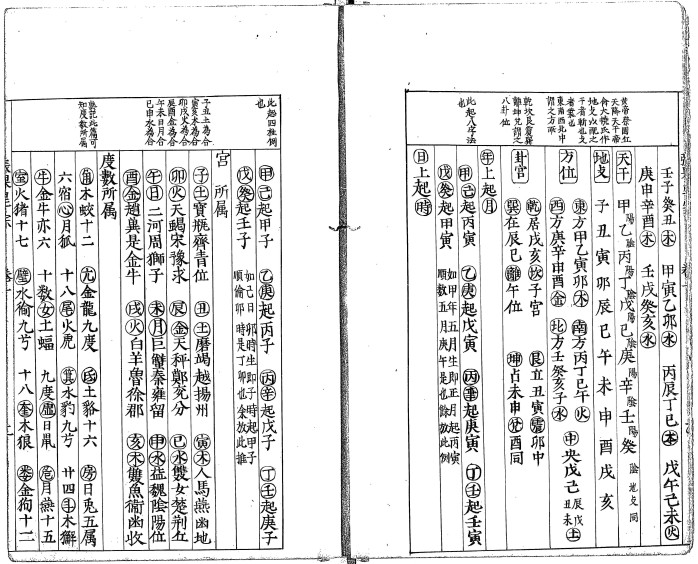 壬子癸丑木 甲寅乙卯水 丙辰丁巳土 戊午己未火
庚申辛酉木 壬戌癸亥水
黃帝祭圜丘
天降天干帝
令大撓氏作
地支以配之
干者幹也支
者葉也
天干 甲陽乙陰丙陽丁陰戊陽己陰庚陽辛陰壬陽癸陰 地支同
地支 子丑寅卯辰巳午未申酉戌亥
東南西北中
謂之方所
方位 東方甲乙寅卯木 南方丙丁巳午火 中央戊己辰戌丑未土
西方庚辛申酉金 北方壬癸亥子水
乾坎艮震巽
離坤兌謂之
八卦位
卦宫 乾居戌亥坎子宮 艮立丑寅震卯中
巽在辰巳離午位 坤占未申兌酉同
年上起月
此起八字法
也
甲己起丙寅 乙庚起戊寅 丙辛起庚寅 丁壬起壬寅
戊癸起甲寅 如甲年五月生即正月起丙寅
順數五月庚午是也餘放此例
日上起時
此起四柱例
也
甲己起甲子 乙庚起丙子 丙辛起戊子 丁壬起庚子
戊癸起壬子 如己日卯時生即子時起甲子
順倫卯時是丁卯也余放此推
宮所属
子丑土為合
寅亥木為合
卯戌火為合
辰酉金為合
午未日月合
巳申水為合
子土寶瓶齊青位 丑土磨竭越揚州 寅木人馬燕幽地
卯火天蝎宋豫求 辰金天秤鄭兖分 巳水雙女楚荆丘
午日二河周獅子 未月巨蟹秦雍留 申水益魏陰陽位
酉金趙冀是金牛 戌火白羊魯徐郡 亥木雙魚衞幽收
度數所属
熟記此篇可
知度數所屬
角木蛟十二 亢金龍九度 氐土貉十六 房日兎五属
六宿心月狐 十八尾火虎 箕水豹九亐 廿四斗木獬
牛金牛亦六 十數女土蝠 九度虛日鼠 危月燕十五
室火猪十七 壁水㺄九亐 十八奎木狼 婁金狗十二